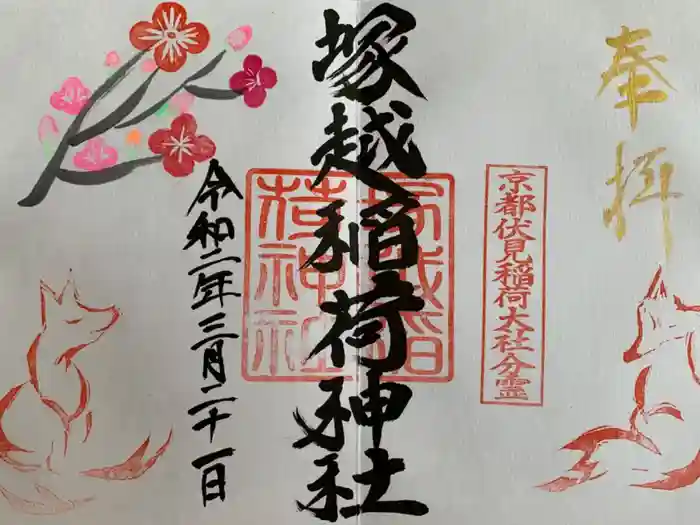 奉拝
京都伏見稲荷大社分霊
塚越稲荷神社
塚越稲
荷神社
令和二年三月二十一日